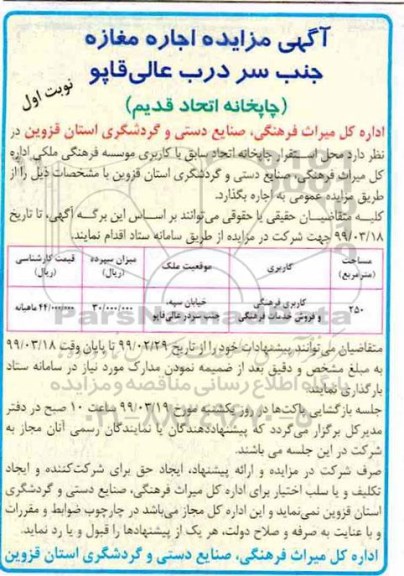 آگهی مزایده اجاره مغازه
جنب سر درب عالی‌قاپو
نوبت اول
(چاپخانه اتحاد قدیم)
اداره کل میراث فرهنگی، صنایع دستی و گردشگری استان قزوین در
نظر دارد محل استقرار چاپخانه اتحاد سابق با کاربری موسسه فرهنگی ملکی اداره
کل میراث فرهنگی، صنایع دستی و گردشگری استان قزوین با مشخصات ذیل را از
طریق مزایده عمومی به اجاره بگذارد.
کلیه متقاضیان حقیقی یا حقوقی می‌توانند بر اساس این برگه آگهی، تا تاریخ
۹۹/۰۳/۱۸ جهت شرکت در مزایده از طریق سامانه ستاد اقدام نمایند.
مساحت (مترمربع) کاربری موقعیت ملک میزان سپرده (ریال) قیمت کارشناسی (ریال)
۲۵۰ کاربری فرهنگی و فروش خدمات فرهنگی خیابان سپه، جنب سردر عالی‌قاپو ۳۰/۰۰۰/۰۰۰ ۴۴/۰۰۰/۰۰۰ ماهیانه
متقاضیان می‌توانند پیشنهادات خود را از تاریخ ۹۹/۰۲/۲۹ تا پایان وقت ۹۹/۰۳/۱۸
به مبلغ مشخص و دقیق بعد از ضمیمه نمودن مدارک مورد نیاز در سامانه ستاد
بارگذاری نمایند.
جلسه بازگشایی پاکت‌ها در روز یکشنبه مورخ ۹۹/۰۳/۱۹ ساعت ۱۰ صبح در دفتر
مدیرکل برگزار می‌گردد که پیشنهاددهندگان یا نمایندگان رسمی آنان مجاز به
شرکت در این جلسه می باشند.
صرف شرکت در مزایده و ارائه پیشنهاد، ایجاد حق برای شرکت‌کننده و ایجاد
تکلیف و یا سلب اختیار برای اداره کل میراث فرهنگی، صنایع دستی و گردشگری
استان قزوین نمی‌نماید و این اداره کل مجاز می‌باشد در چارچوب ضوابط و مقررات
و با عنایت به صرفه و صلاح دولت، هر یک از پیشنهادها را قبول و یا رد نماید.
اداره کل میراث فرهنگی، صنایع دستی و گردشگری استان قزوین
ParsNamadData
پایگاه اطلاع رسانی مناقصه و مزایده